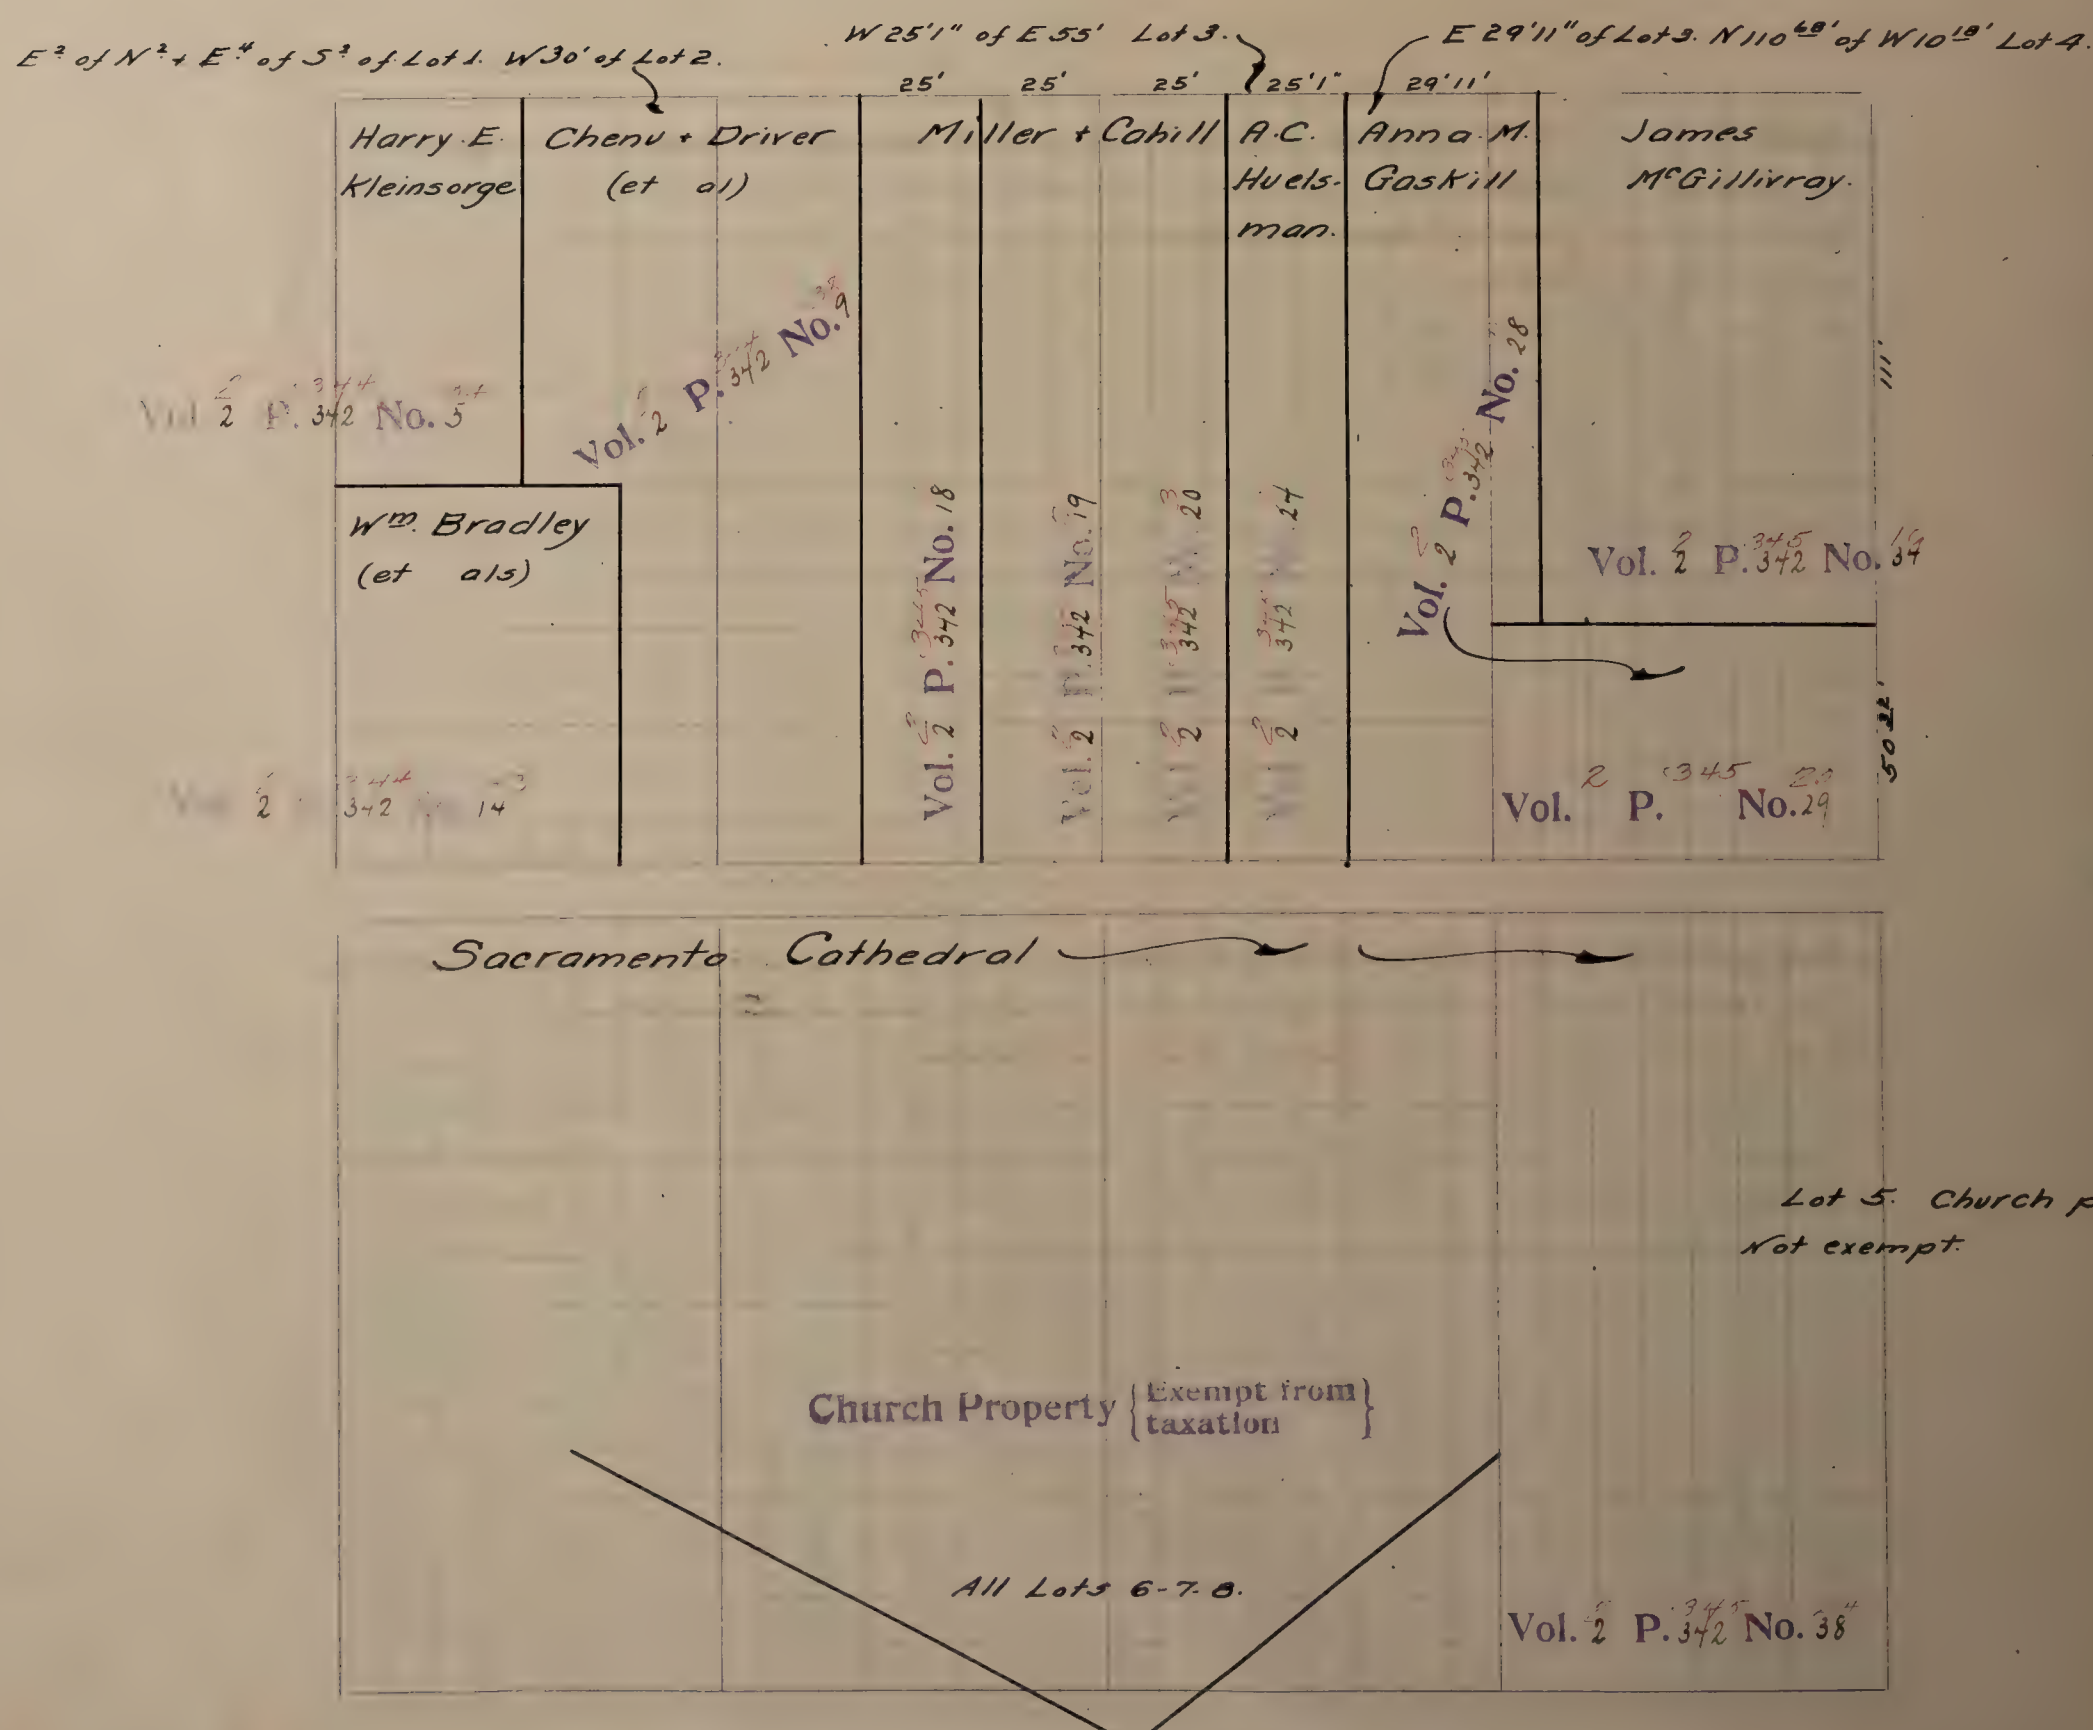 E² of N² + E⁴ of S² of Lot 1. W 30' of Lot 2.
W 25'1" of E 55' Lot 3.
E 29'11" of Lot 3. N 110⁶⁸' of W 10¹⁸' Lot 4.
25' 25' 25' 25'1" 29'11'
Harry E.
Kleinsorge
Chenu + Driver
(et al)
Miller + Cahill
A.C.
Huels-
man.
Anna M.
Gaskill
James
McGillivray.
111'
Vol. 2 P. 342 No. 5
Vol. 2 P. 342 No. 9
Wm. Bradley
(et als)
Vol. 2 P. 342 No. 18
Vol. 2 P. 342 No. 19
2 342 20
2 342 24
Vol. 2 P. 342 No. 28
Vol. 2 P. 342 No. 34
2 342 14
Vol. 2 P. 345 No. 29
Sacramento Cathedral
Lot 5. Church
Not exempt.
Church Property { Exempt from
taxation }
All Lots 6-7-8.
Vol. 2 P. 342 No. 38